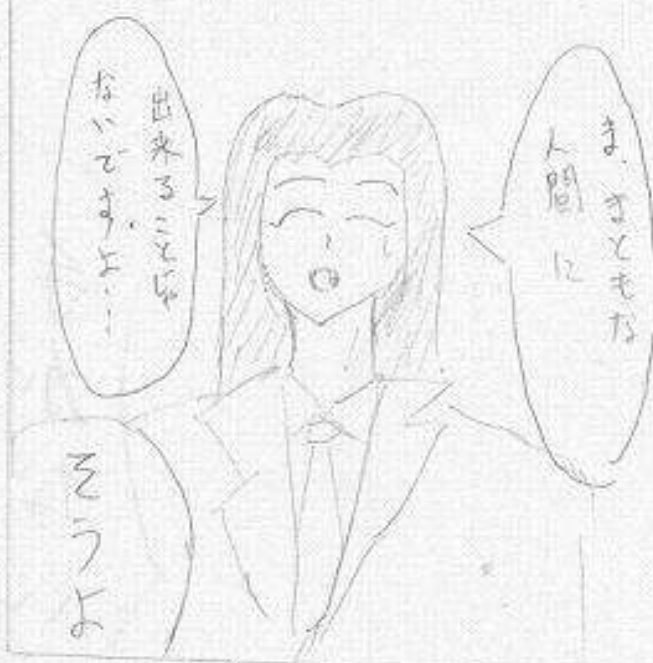 ま、まともな
人間に
出来ることじゃ
ないですよ…
そうよ